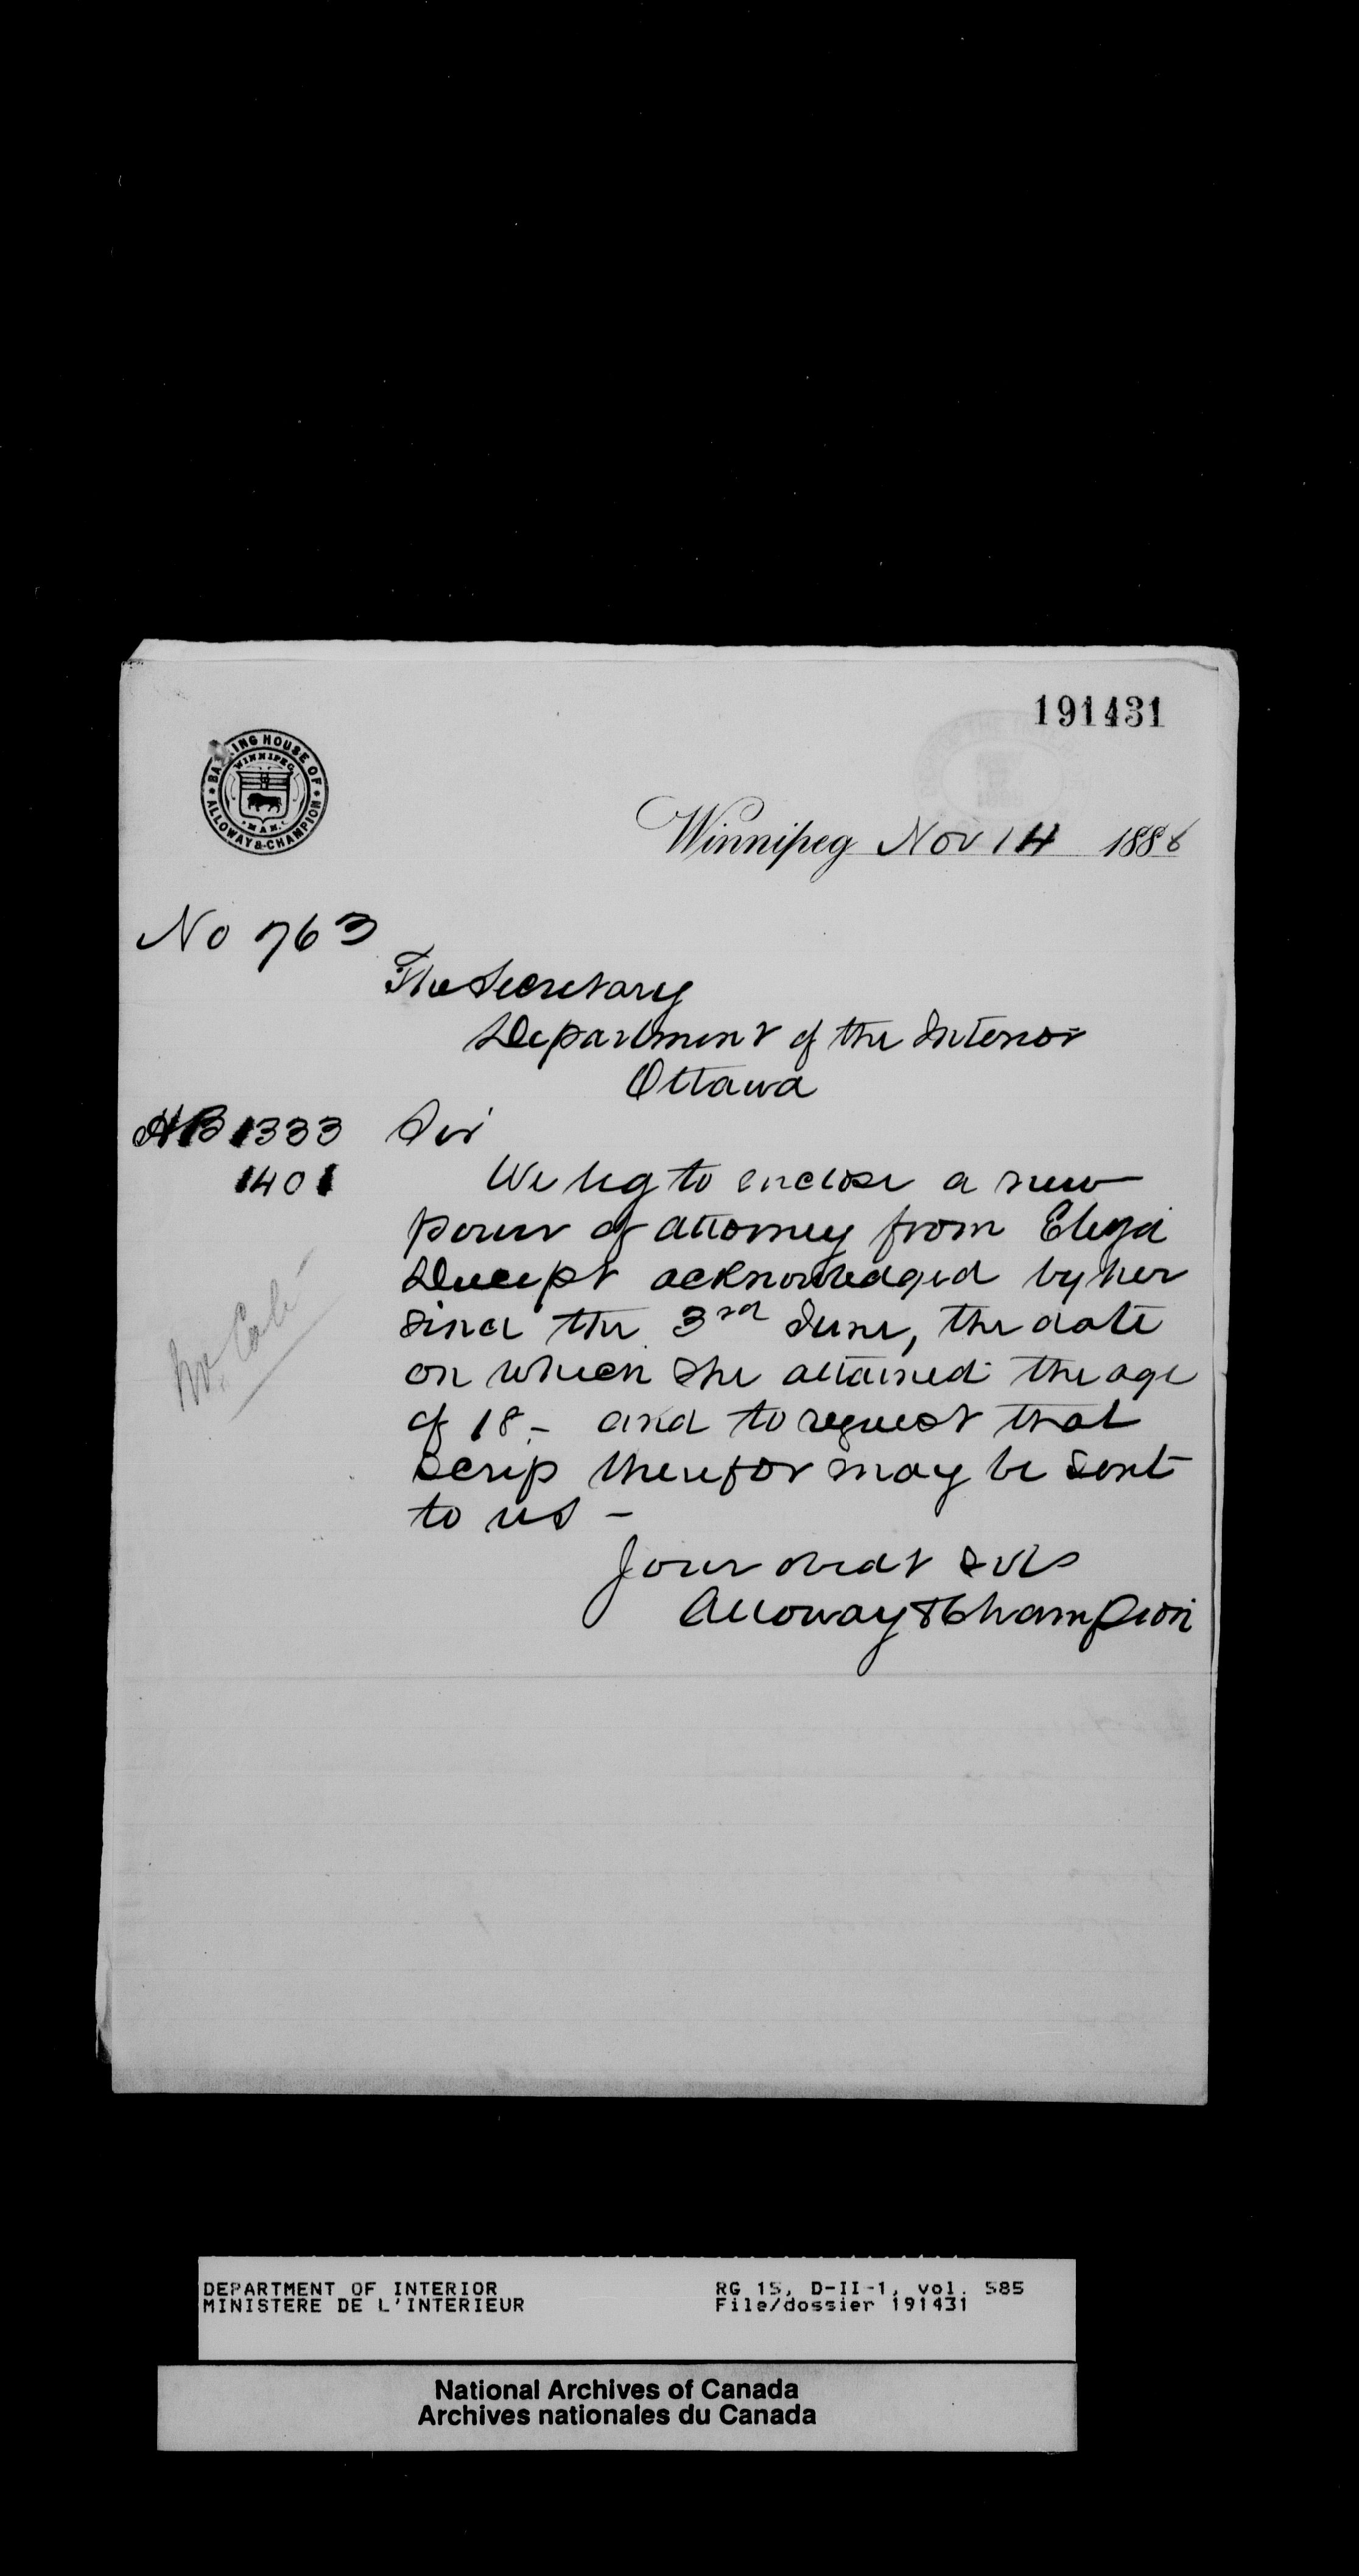 191431
BANKING HOUSE OF
ALLOWAY & CHAMPION
WINNIPEG
MAN.
Winnipeg Nov 14 1886
No 763
The Secretary
Department of the Interior
Ottawa
HB 1333 Sir
1401 We beg to enclose a new
power of attorney from Eliza
acknowledged by her
since the 3rd June, the date
on which she attained the age
of 18. - and to request that
scrip therefor may be sent
to us -
Your obedt svts
Alloway & Champion
DEPARTMENT OF INTERIOR
MINISTERE DE L'INTERIEUR
RG 15, D-II-1, vol. 585
File/dossier 191431
National Archives of Canada
Archives nationales du Canada